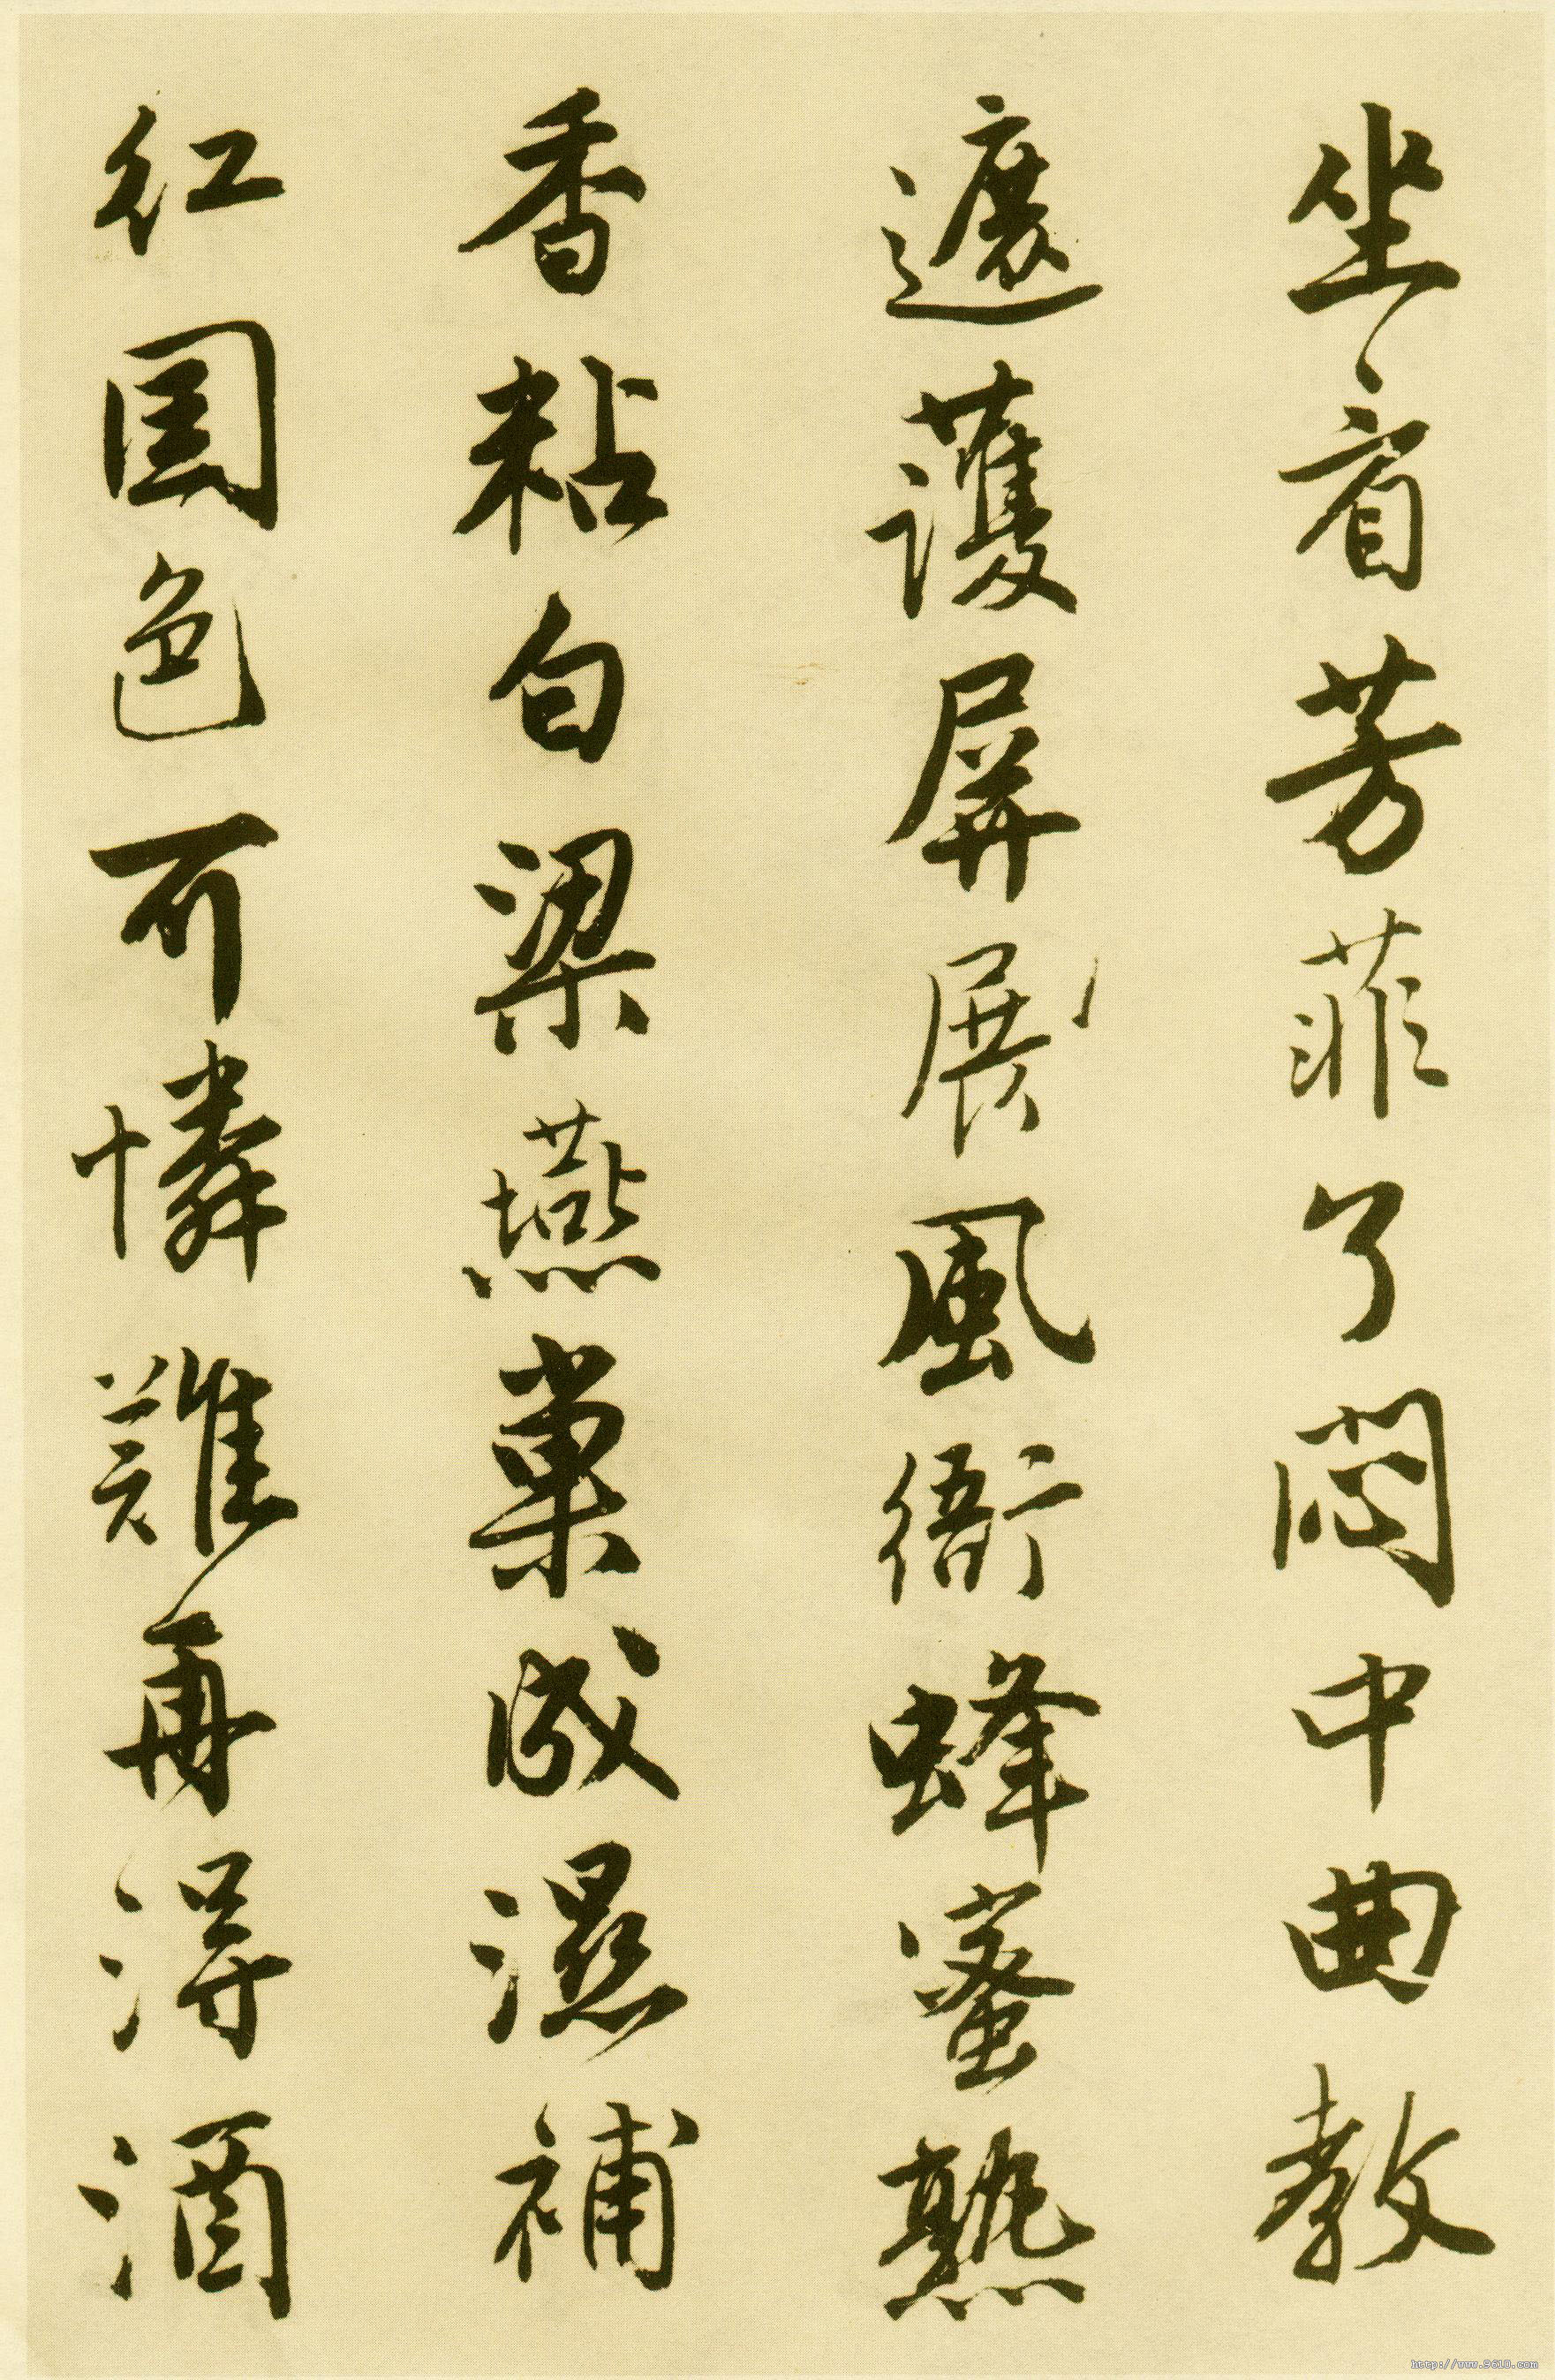 坐看芳菲了悶中曲教
遮護屏展風衙蜂蜜熟
香粘白梁燕巢成濕補
紅国色可憐難再得酒
http://www.9610.com